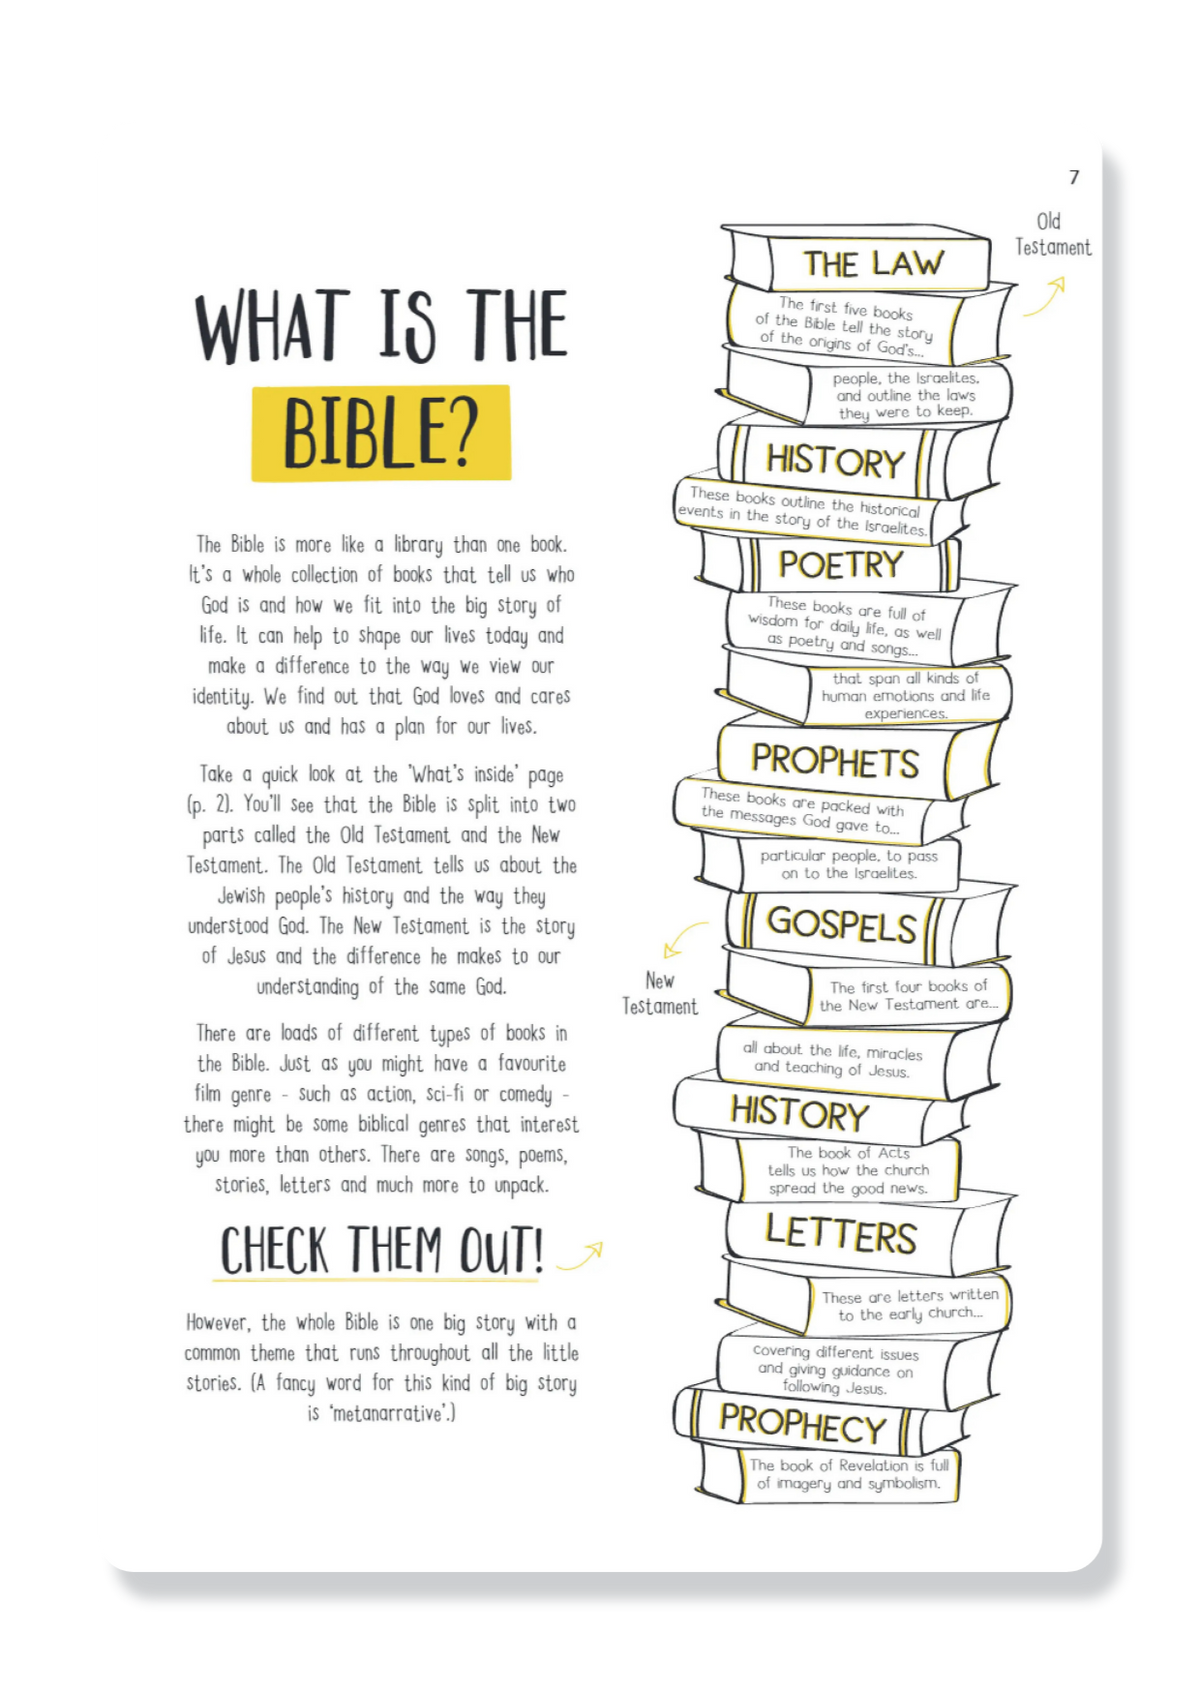 7
WHAT IS THE
BIBLE?
The Bible is more like a library than one book.
It's a whole collection of books that tell us who
God is and how we fit into the big story of
life. It can help to shape our lives today and
make a difference to the way we view our
identity. We find out that God loves and cares
about us and has a plan for our lives.
Take a quick look at the 'What's inside' page
(p. 2). You'll see that the Bible is split into two
parts called the Old Testament and the New
Testament. The Old Testament tells us about the
Jewish people's history and the way they
understood God. The New Testament is the story
of Jesus and the difference he makes to our
understanding of the same God.
There are loads of different types of books in
the Bible. Just as you might have a favourite
film genre - such as action, sci-fi or comedy -
there might be some biblical genres that interest
you more than others. There are songs, poems,
stories, letters and much more to unpack.
CHECK THEM OUT!
However, the whole Bible is one big story with a
common theme that runs throughout all the little
stories. (A fancy word for this kind of big story
is 'metanarrative'.)
Old
Testament
THE LAW
The first five books
of the Bible tell the story
of the origins of God's...
people, the Israelites,
and outline the laws
they were to keep.
HISTORY
These books outline the historical
events in the story of the Israelites.
POETRY
These books are full of
wisdom for daily life, as well
as poetry and songs...
that span all kinds of
human emotions and life
experiences.
PROPHETS
These books are packed with
the messages God gave to...
particular people, to pass
on to the Israelites.
New
Testament
GOSPELS
The first four books of
the New Testament are...
all about the life, miracles
and teaching of Jesus.
HISTORY
The book of Acts
tells us how the church
spread the good news.
LETTERS
These are letters written
to the early church...
covering different issues
and giving guidance on
following Jesus.
PROPHECY
The book of Revelation is full
of imagery and symbolism.